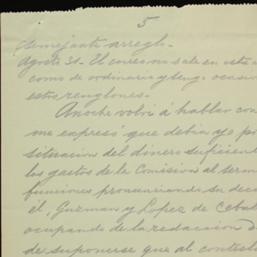 5
semejante arreglo.
Agosto 31. El correo no sale en este d
como de ordinario y tengo ocasi
estos renglones.
Anoche volví á hablar con
me expresó que debía yo p
situación del dinero suficient
los gastos de la Comisión al term
funciones pronunciando su dec
él. Guzman y Lopez de Ceball
ocupando de la redacción d
de suponerse que al contesta